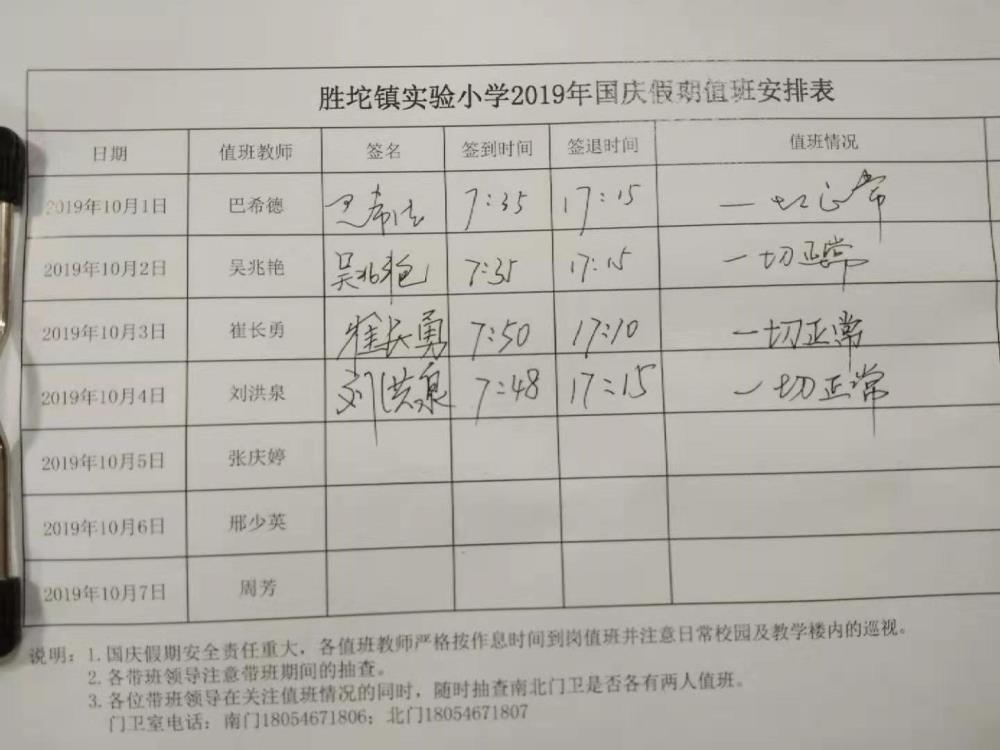 胜坨镇实验小学2019年国庆假期值班安排表
日期 值班教师 签名 签到时间 签退时间 值班情况
2019年10月1日 巴希德 巴希德 7:35 17:15 一切正常
2019年10月2日 吴兆艳 吴兆艳 7:35 17:15 一切正常
2019年10月3日 崔长勇 崔长勇 7:50 17:10 一切正常
2019年10月4日 刘洪泉 刘洪泉 7:48 17:15 一切正常
2019年10月5日 张庆婷
2019年10月6日 邢少英
2019年10月7日 周芳
说明：1.国庆假期安全责任重大，各值班教师严格按作息时间到岗值班并注意日常校园及教学楼内的巡视。
2.各带班领导注意带班期间的抽查。
3.各位带班领导在关注值班情况的同时，随时抽查南北门卫是否各有两人值班。
门卫室电话：南门18054671806；北门18054671807